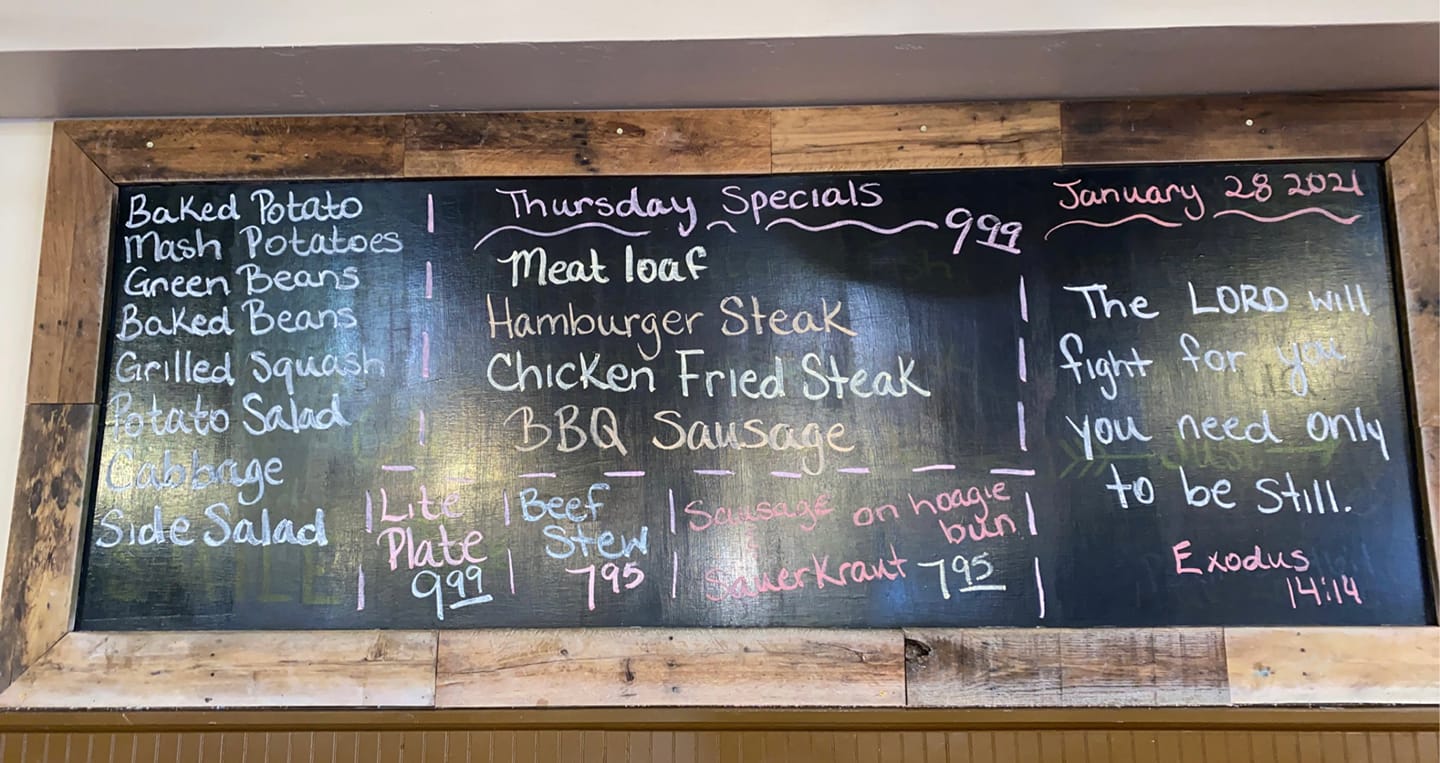 Baked Potato
Mash Potatoes
Green Beans
Baked Beans
Grilled Squash
Potato Salad
Cabbage
Side Salad
Thursday Specials
9.99
Meat loaf
Hamburger Steak
Chicken Fried Steak
BBQ Sausage
Lite
Plate
9.99
Beef
Stew
7.95
Sausage on hoagie
bun
Sauerkraut 7.95
January 28 2021
The LORD will
fight for you
you need only
to be still.
Exodus
14:14